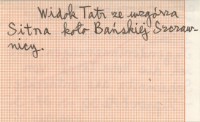 Widok Tatr ze wzgórza
Sitna koło Bańskiéj Szczaw-
nicy.